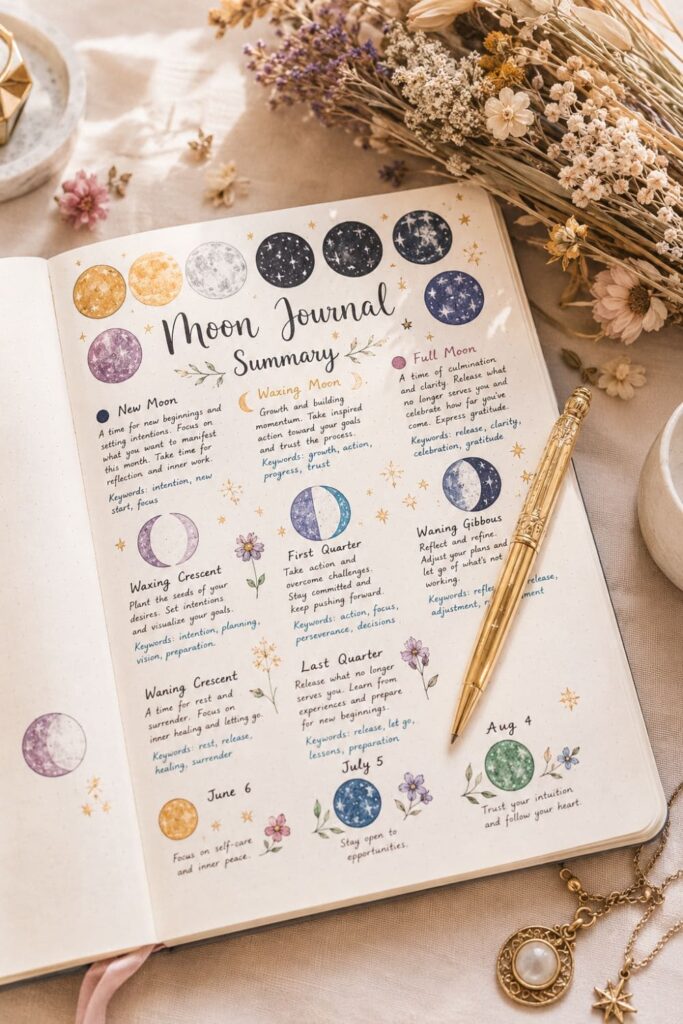 Moon Journal
Summary
New Moon
A time for new beginnings and
setting intentions. Focus on
what you want to manifest
this month. Take time for
reflection and inner work.
Keywords: intention, new
start, focus
Waxing Moon
Growth and building
momentum. Take inspired
action toward your goals
and trust the process.
Keywords: growth, action,
progress, trust
Full Moon
A time of culmination
and clarity. Release what
no longer serves you and
celebrate how far you've
come. Express gratitude.
Keywords: release, clarity,
celebration, gratitude
Waxing Crescent
Plant the seeds of your
desires. Set intentions
and visualize your goals.
Keywords: intention, planning,
vision, preparation
First Quarter
Take action and
overcome challenges.
Stay committed and
keep pushing forward.
Keywords: action, focus,
perseverance, decisions
Waning Gibbous
Reflect and refine.
Adjust your plans and
let go of what's not
working.
Keywords: release,
adjustment,
Waning Crescent
A time for rest and
surrender. Focus on
inner healing and letting go.
Keywords: rest, release,
healing, surrender
Last Quarter
Release what no longer
serves you. Learn from
experiences and prepare
for new beginnings.
Keywords: release, let go,
lessons, preparation
June 6
Focus on self-care
and inner peace.
July 5
Stay open to
opportunities.
Aug 4
Trust your intuition
and follow your heart.